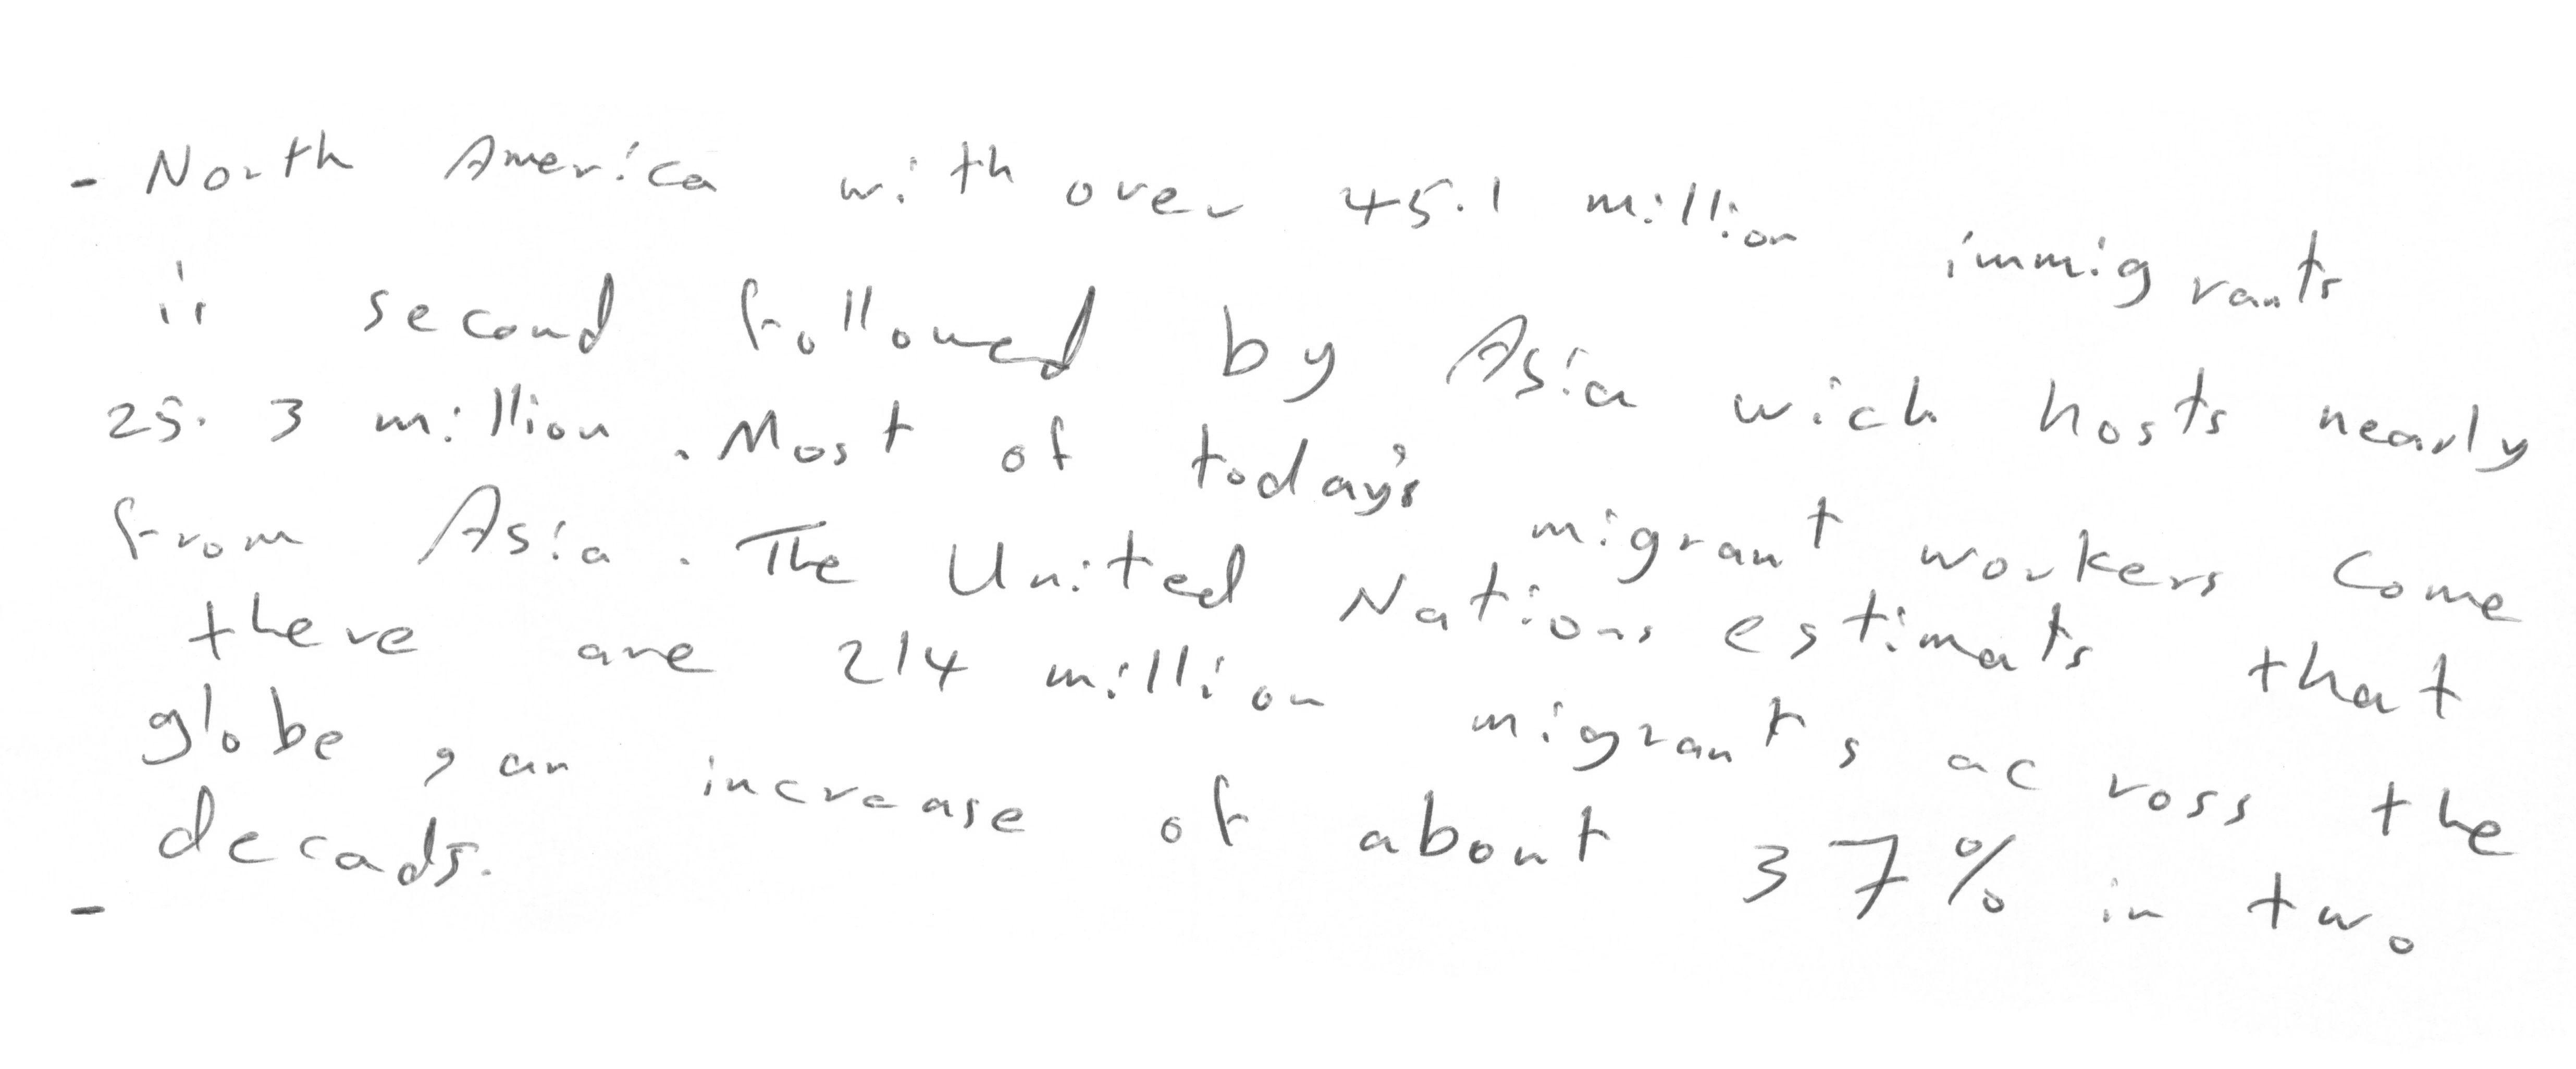 - North America with over 45.1 million immigrants
is second followed by Asia wich hosts nearly
25.3 million. Most of today's migrant workers come
from Asia. The United Nations estimats that
there are 214 million migrants across the
globe, an increase of about 37% in two
decads.
-